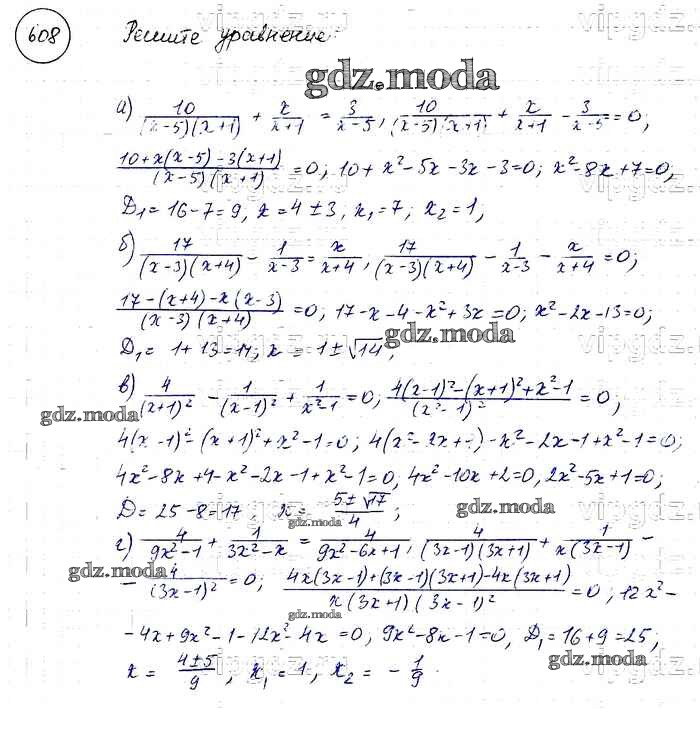 608 Решите уравнение:
gdz.moda
а) 10/((x-5)(x+1)) + x/(x+1) = 3/(x-5), 10/((x-5)(x+1)) + x/(x+1) - 3/(x-5) = 0;
(10+x(x-5)-3(x+1))/((x-5)(x+1)) = 0; 10+x²-5x-3x-3=0; x²-8x+7=0,
D₁=16-7=9, x=4±3, x₁=7; x₂=1;
б) 17/((x-3)(x+4)) - 1/(x-3) = x/(x+4), 17/((x-3)(x+4)) - 1/(x-3) - x/(x+4) = 0;
(17-(x+4)-x(x-3))/((x-3)(x+4)) = 0, 17-x-4-x²+3x=0; x²-2x-13=0;
gdz.moda
D₁=1+13=14; x=1±√14;
в) 4/(x+1)² - 1/(x-1)² + 1/(x²-1) = 0, (4(x-1)²-(x+1)²+x²-1)/(x²-1)² = 0,
gdz.moda
4(x-1)²-(x+1)²+x²-1=0; 4(x²-2x+1)-x²-2x-1+x²-1=0;
4x²-8x+4-x²-2x-1+x²-1=0, 4x²-10x+2=0, 2x²-5x+1=0;
D=25-8=17 x=(5±√17)/4;
gdz.moda
gdz.moda
г) 4/(9x²-1) + 1/(3x²-x) = 4/(9x²-6x+1), 4/((3x-1)(3x+1)) + 1/(x(3x-1)) -
gdz.moda
- 4/(3x-1)² = 0; (4x(3x-1)+(3x-1)(3x+1)-4x(3x+1))/(x(3x+1)(3x-1)²) = 0, 12x²-
gdz.moda
-4x+9x²-1-12x²-4x=0, 9x²-8x-1=0, D₁=16+9=25;
gdz.moda
x=(4±5)/9; x₁=1, x₂=-1/9.